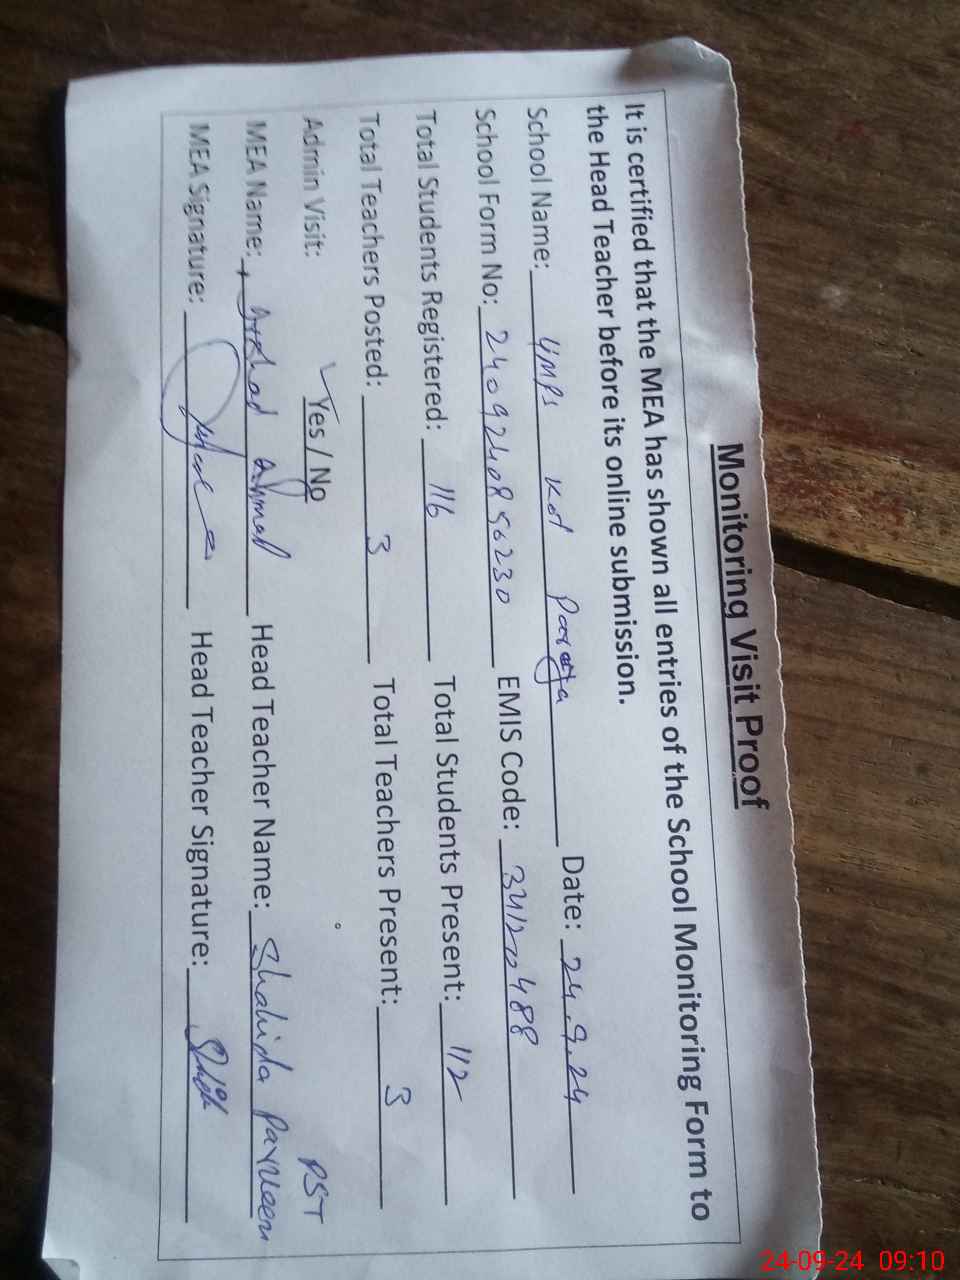 Monitoring Visit Proof
It is certified that the MEA has shown all entries of the School Monitoring Form to
the Head Teacher before its online submission.
School Name: GMPS Kot Date: 24.9.24
School Form No: 2409240856230 EMIS Code: 34120488
Total Students Registered: 116 Total Students Present: 112
Total Teachers Posted: 3 Total Teachers Present: 3
Admin Visit: Yes / No PST
MEA Name: Arshad Ahmad Head Teacher Name: Shahida Parveen
MEA Signature: Head Teacher Signature:
24-09-24 09:10